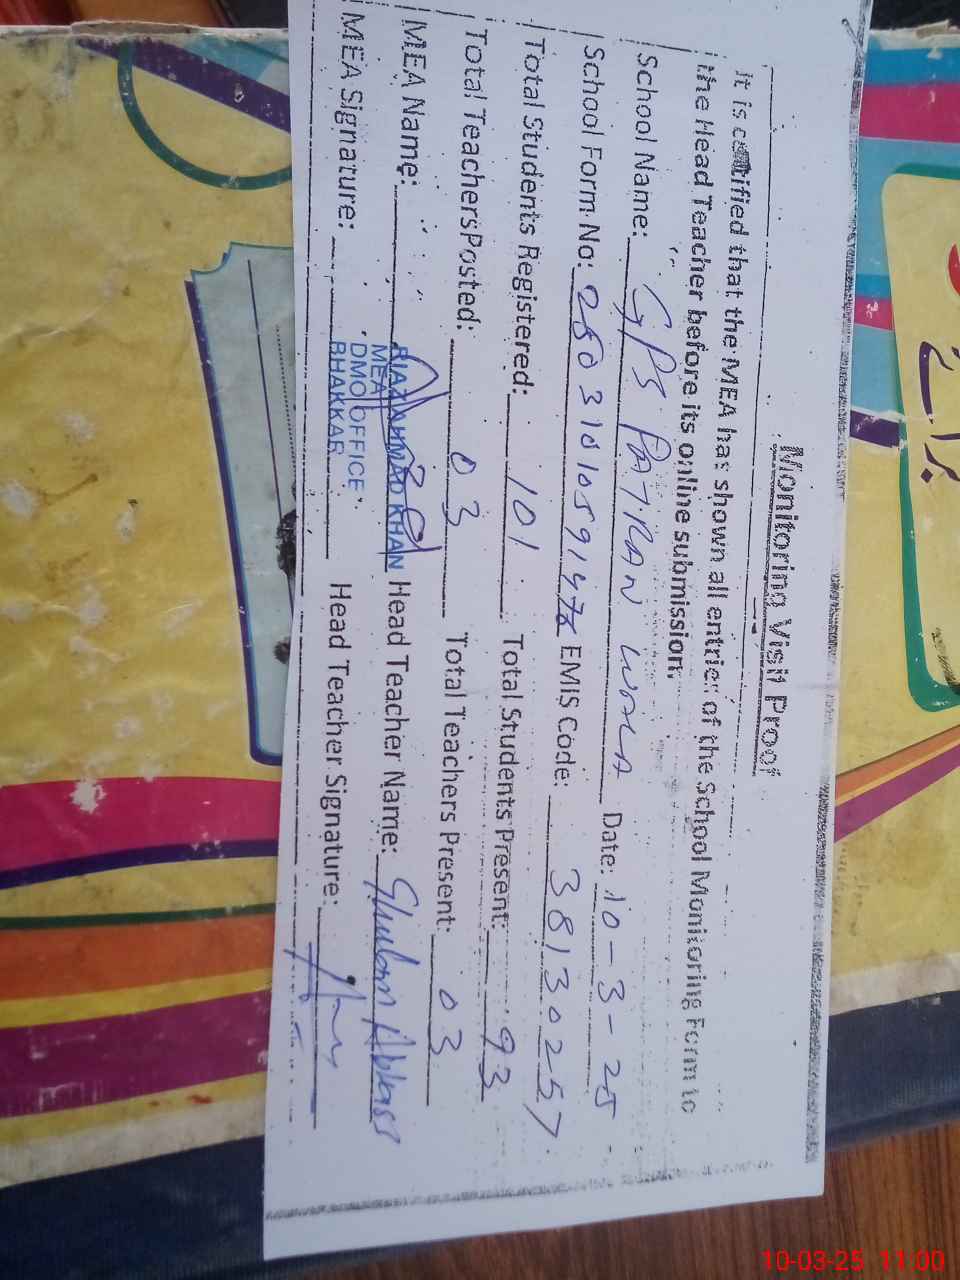 Monitoring Visit Proof
It is certified that the MEA has shown all entries of the School Monitoring Form to
the Head Teacher before its online submission.
School Name: GPS PATRAN WALA Date: 10-3-25
School Form No: EMIS Code: 38130257
Total Students Registered: 101 Total Students Present: 93
Total Teachers Posted: 03 Total Teachers Present: 03
MEA Name: RIAZ AHMAD KHAN Head Teacher Name: Ghulam Abbas
MEA
DMO OFFICE
BHAKKAR
MEA Signature: Head Teacher Signature:
10-03-25 11:00